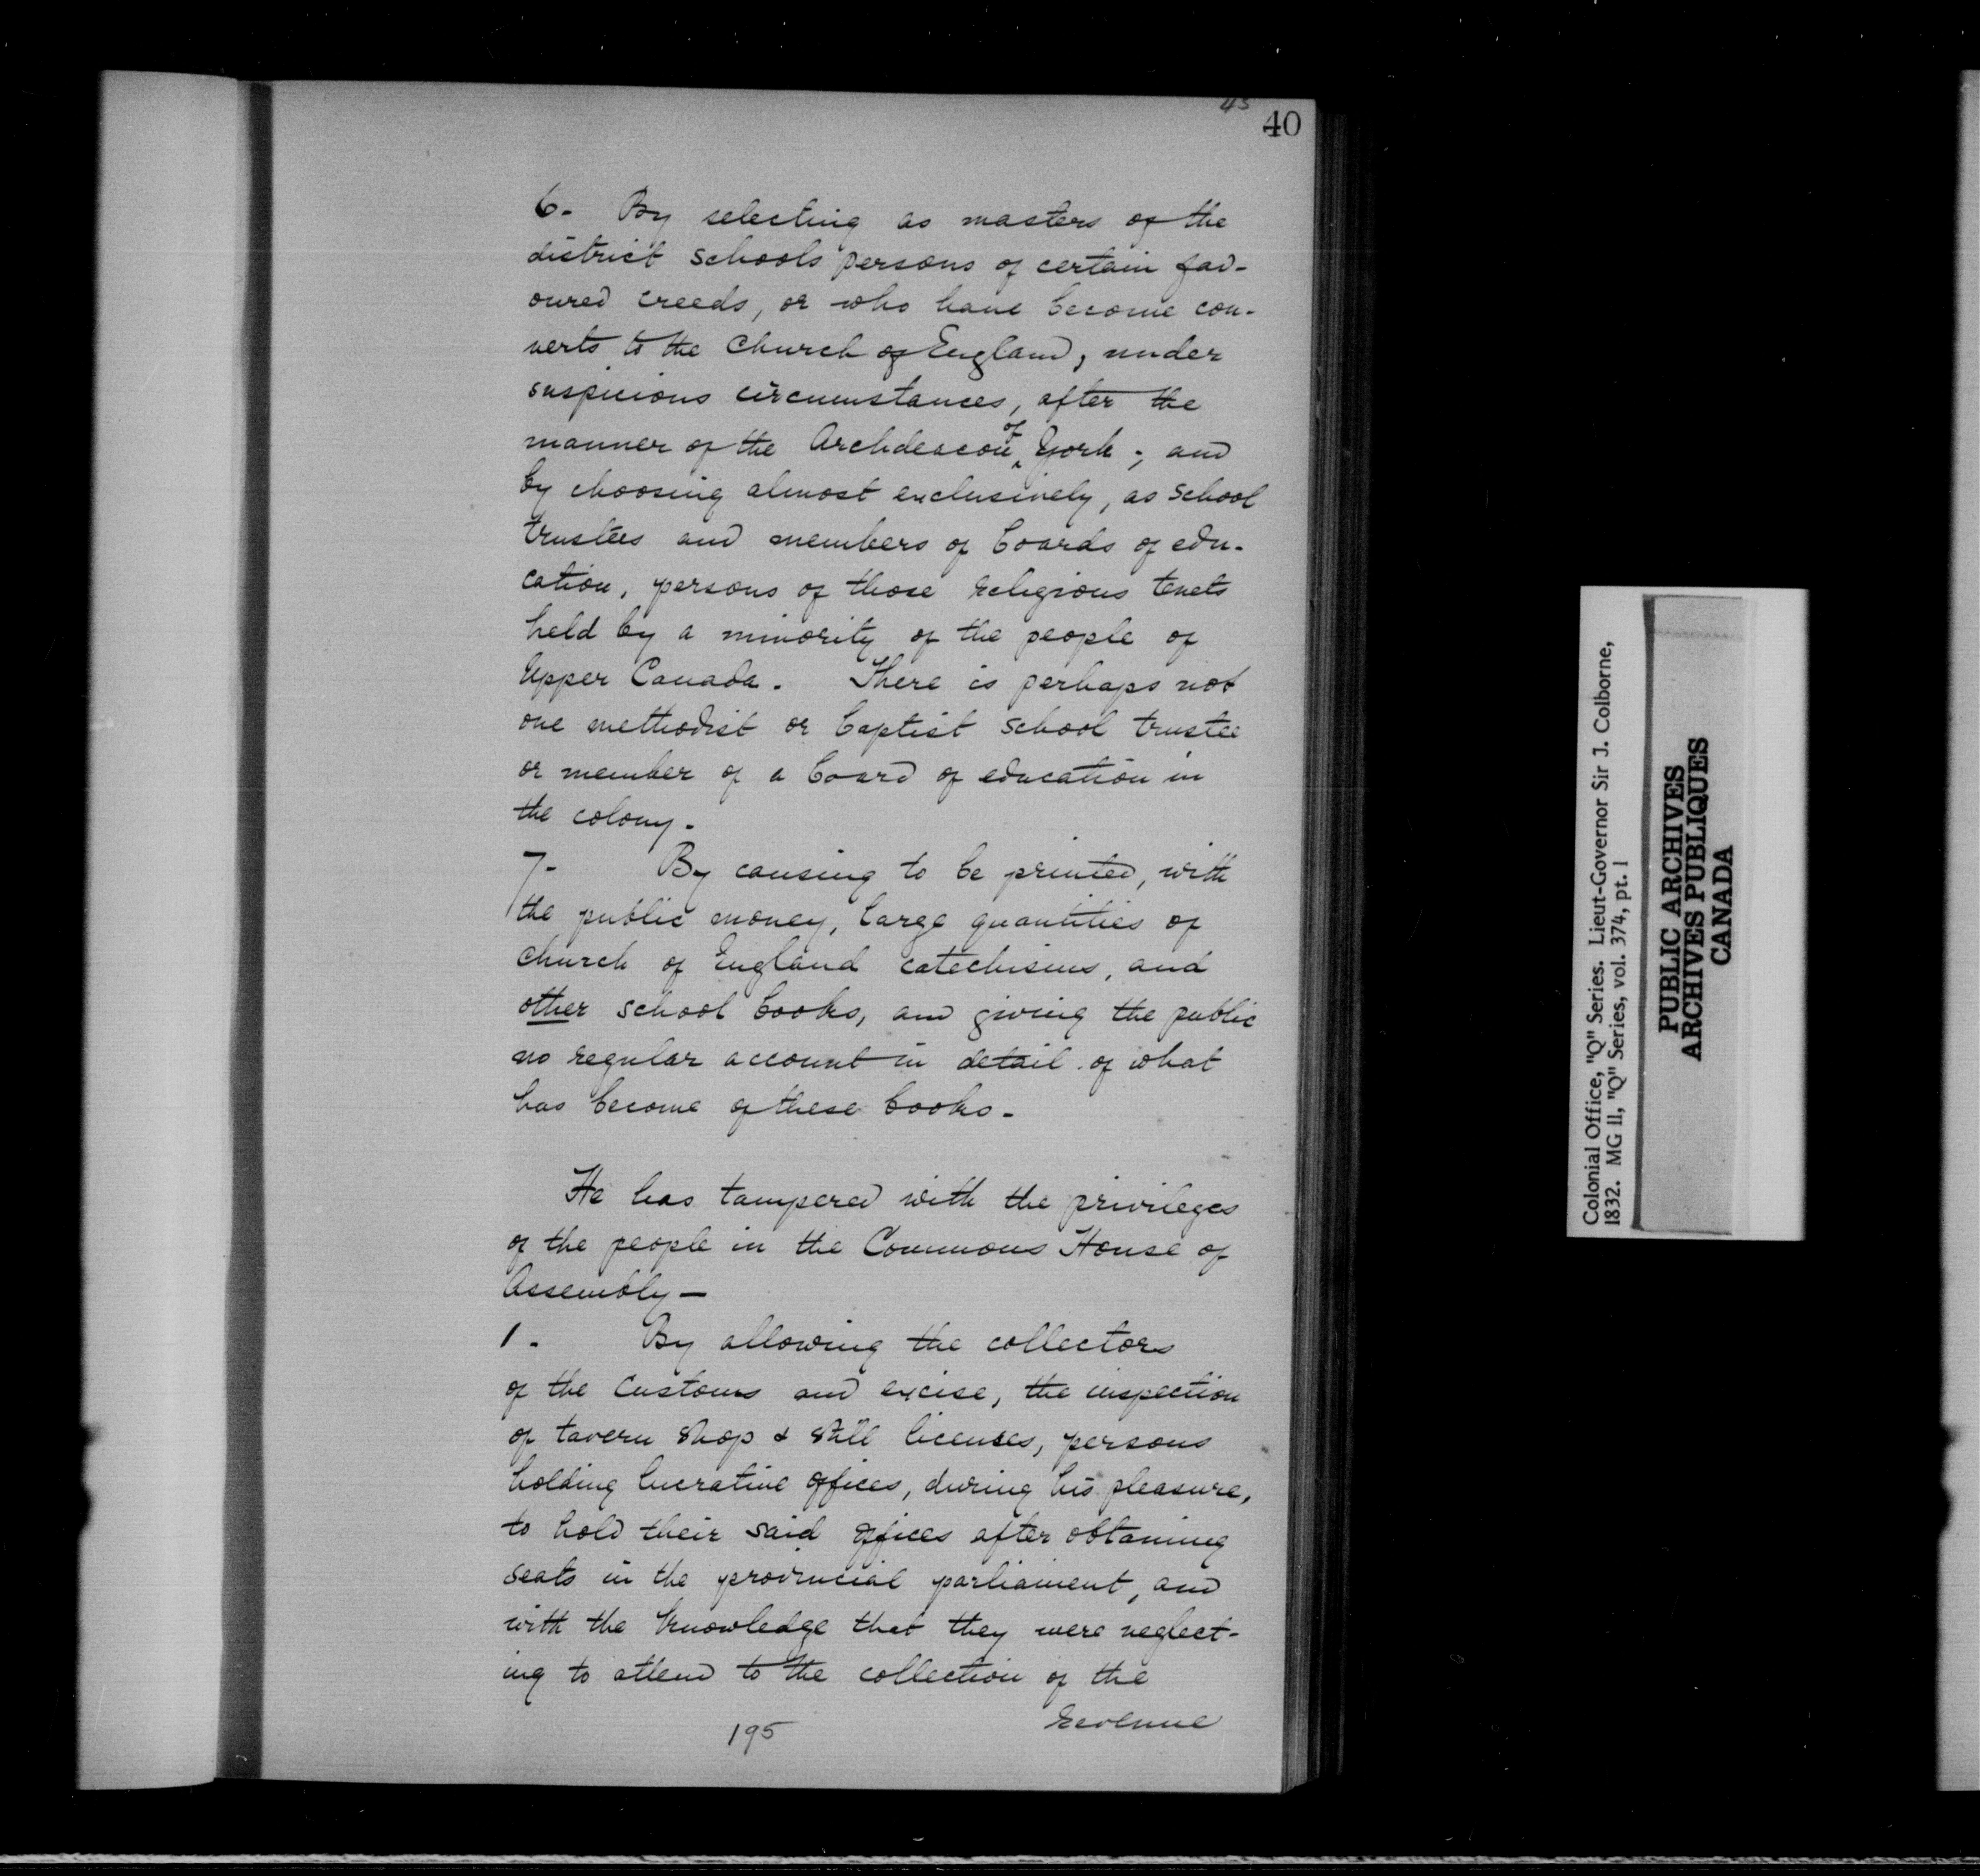 45
40
6. By selecting as masters of the
district schools persons of certain fav-
oured creeds, or who have become con-
verts to the Church of England, under
suspicious circumstances, after the
manner of the Archdeacon of York; and
by choosing almost exclusively, as school
trustees and members of boards of edu-
cation, persons of those religious tenets
held by a minority of the people of
Upper Canada. There is perhaps not
one methodist or baptist school trustee
or member of a board of education in
the colony.
7. By causing to be printed, with
the public money, large quantities of
church of England catechisms, and
other school books, and giving the public
no regular account in detail of what
has become of these books.
He has tampered with the privileges
of the people in the Commons House of
Assembly —
1. By allowing the collectors
of the customs and excise, the inspection
of tavern shop & still licenses, persons
holding lucrative offices, during his pleasure,
to hold their said offices after obtaining
seats in the provincial parliament, and
with the knowledge that they were neglect-
ing to attend to the collection of the
revenue
195
Colonial Office, "Q" Series. Lieut-Governor Sir J. Colborne,
1832. MG 11, "Q" Series, vol. 374, pt. 1
PUBLIC ARCHIVES
ARCHIVES PUBLIQUES
CANADA